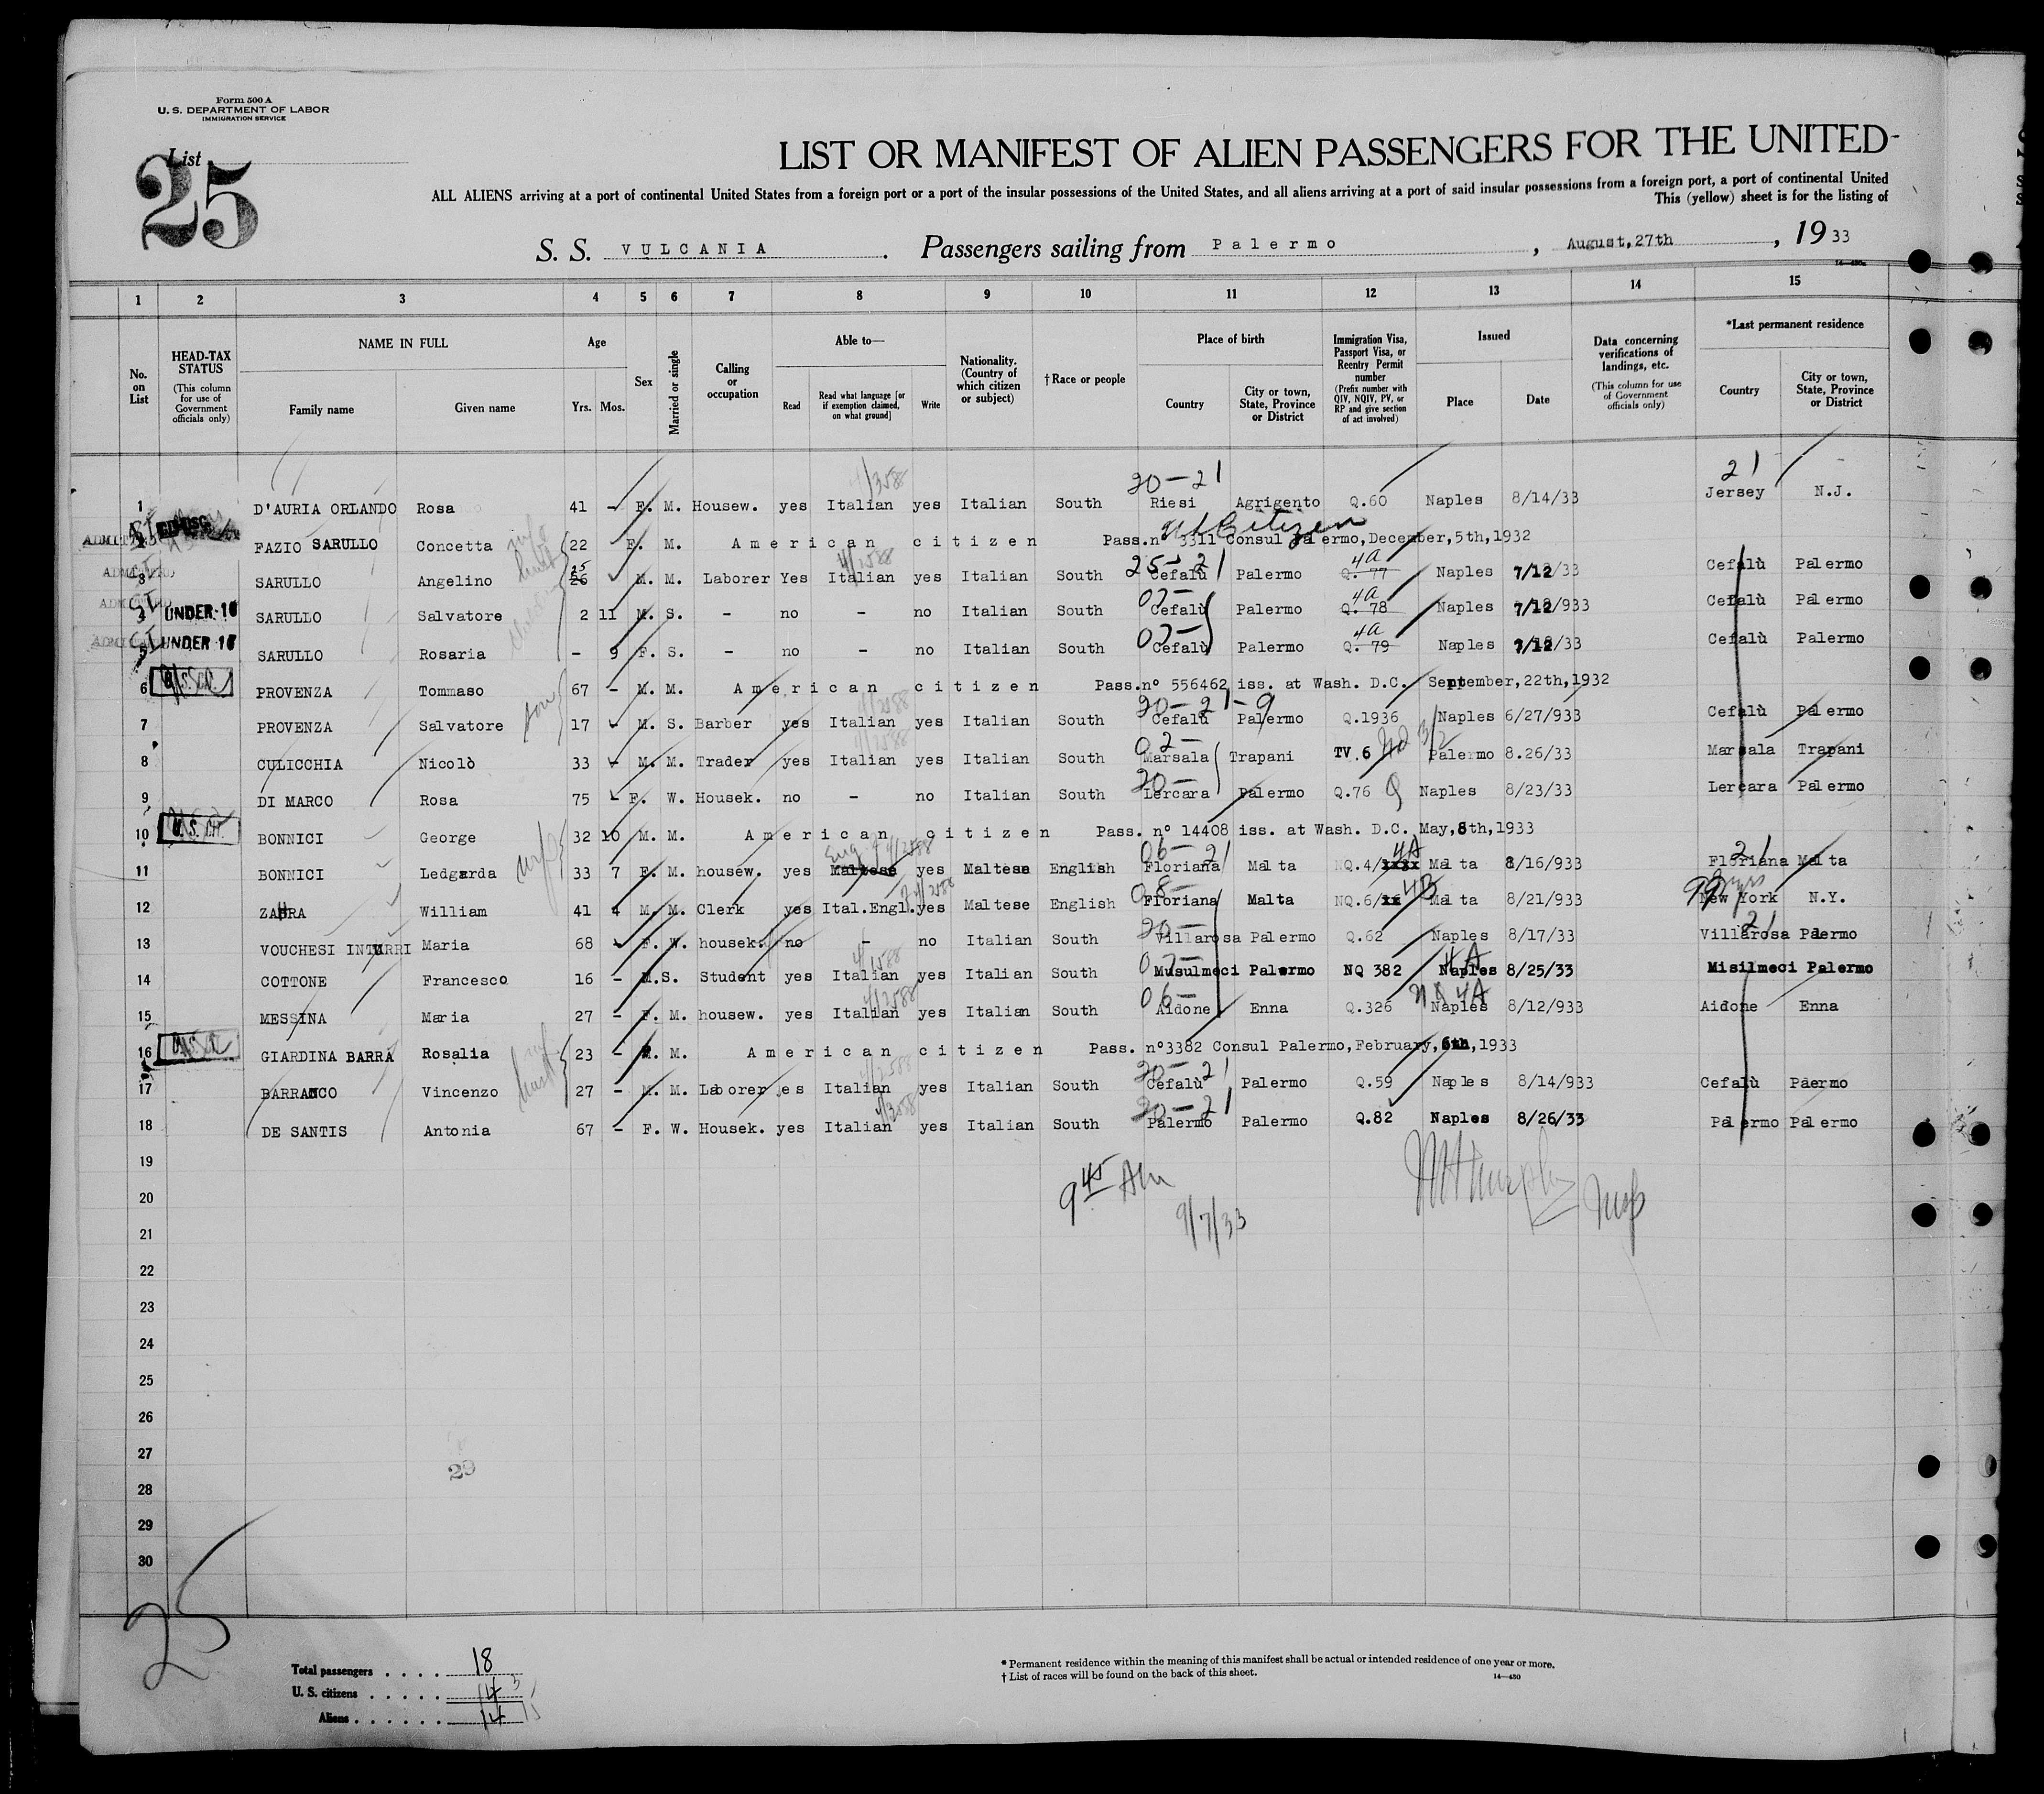 Form 500 A
U. S. DEPARTMENT OF LABOR
IMMIGRATION SERVICE
List
25
LIST OR MANIFEST OF ALIEN PASSENGERS FOR THE UNITED
ALL ALIENS arriving at a port of continental United States from a foreign port or a port of the insular possessions of the United States, and all aliens arriving at a port of said insular possessions from a foreign port, a port of continental United
This (yellow) sheet is for the listing of
S. S. VULCANIA. Passengers sailing from Palermo, August,27th, 1933
1 2 3 4 5 6 7 8 9 10 11 12 13 14 15
No. on List
HEAD-TAX STATUS (This column for use of Government officials only)
NAME IN FULL
Family name Given name
Age
Yrs. Mos.
Sex
Married or single
Calling or occupation
Able to—
Read
Read what language [or if exemption claimed, on what ground]
Write
Nationality. (Country of which citizen or subject)
† Race or people
Place of birth
Country
City or town, State, Province or District
Immigration Visa, Passport Visa, or Reentry Permit number (Prefix number with QIV, NQIV, PV, or RP and give section of act involved)
Issued
Place Date
Data concerning verifications of landings, etc. (This column for use of Government officials only)
*Last permanent residence
Country
City or town, State, Province or District
20-21 21
1 D'AURIA ORLANDO Rosa 41 - F. M. Housew. yes Italian yes Italian South Riesi Agrigento Q.60 Naples 8/14/33 Jersey N.J.
US Citizen
2 FAZIO SARULLO Concetta 22 F. M. American citizen Pass.n° 3311 Consul Palermo,December,5th,1932
3 SARULLO Angelino 26 25 M. M. Laborer Yes Italian yes Italian South 25-21 Cefalù Palermo Q. 77 4a Naples 7/12/33 Cefalù Palermo
4 UNDER 16 SARULLO Salvatore 2 11 M. S. - no - no Italian South Cefalù Palermo Q. 78 4a Naples 7/12/933 Cefalù Palermo
5 UNDER 16 SARULLO Rosaria - 9 F. S. - no - no Italian South Cefalù Palermo Q. 79 4a Naples 7/12/33 Cefalù Palermo
6 PROVENZA Tommaso 67 - M. M. American citizen Pass.n° 556462 iss. at Wash. D.C. September,22th,1932
7 PROVENZA Salvatore son 17 - M. S. Barber yes Italian yes Italian South 20-21-9 Cefalù Palermo Q.1936 Naples 6/27/933 Cefalù Palermo
8 CULICCHIA Nicolò 33 - M. M. Trader yes Italian yes Italian South 02- Marsala Trapani TV.6 Palermo 8.26/33 Marsala Trapani
9 DI MARCO Rosa 75 - F. W. Housek. no - no Italian South 20- Lercara Palermo Q.76 Naples 8/23/33 Lercara Palermo
10 U.S. CIT. BONNICI George 32 10 M. M. American citizen Pass. n° 14408 iss. at Wash. D.C. May,8th,1933
11 BONNICI Ledgarda wife 33 7 F. M. housew. yes Maltese Eng yes Maltese English 06-21 Floriana Malta NQ.4/xxxx 4A Malta 8/16/933 21 Floriana Malta
12 ZAHRA William 41 4 M. M. Clerk yes Ital.Engl. yes Maltese English 08- Floriana Malta NQ.6/xx 4B Malta 8/21/933 99 New York N.Y.
13 VOUCHESI INTURRI Maria 68 - F. W. housek. no - no Italian South 20- Villarosa Palermo Q.62 Naples 8/17/33 21 Villarosa Palermo
14 COTTONE Francesco 16 - M.S. Student yes Italian yes Italian South Musulmeci Palermo NQ 382 4A Naples 8/25/33 Misilmeci Palermo
15 MESSINA Maria 27 - F. M. housew. yes Italian yes Italian South 06- Aidone Enna Q.326 4A Naples 8/12/933 Aidone Enna
16 GIARDINA BARRA Rosalia 23 - F. M. American citizen Pass. n°3382 Consul Palermo,February,6th,1933
17 BARRANCO Vincenzo 27 - M. M. Laborer es Italian yes Italian South 20-21 Cefalù Palermo Q.59 Naples 8/14/933 Cefalù Paermo
18 DE SANTIS Antonia 67 - F. W. Housek. yes Italian yes Italian South 20-21 Palermo Palermo Q.82 Naples 8/26/33 Palermo Palermo
19
20 9 45 AM
21 9/7/33
22
23
24
25
26
27
29
28
29
30
25
Total passengers . . . . 18
U. S. citizens . . . . .
Aliens . . . . . . 14
* Permanent residence within the meaning of this manifest shall be actual or intended residence of one year or more.
† List of races will be found on the back of this sheet.
14—430